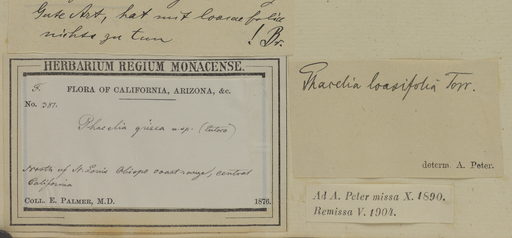 Gute Art, hat mit loasaefolia
nichts zu tun
! Br.
HERBARIUM REGIUM MONACENSE.
F. FLORA OF CALIFORNIA, ARIZONA, &c.
No. 387.
Phacelia grisea n.sp. (tutore)
North of St. Louis Obispo coast range, central
California
COLL. E. PALMER, M.D. 1876.
Phacelia loasifolia Torr.
determ. A. Peter.
Ad A. Peter missa X. 1890.
Remissa V. 1904.